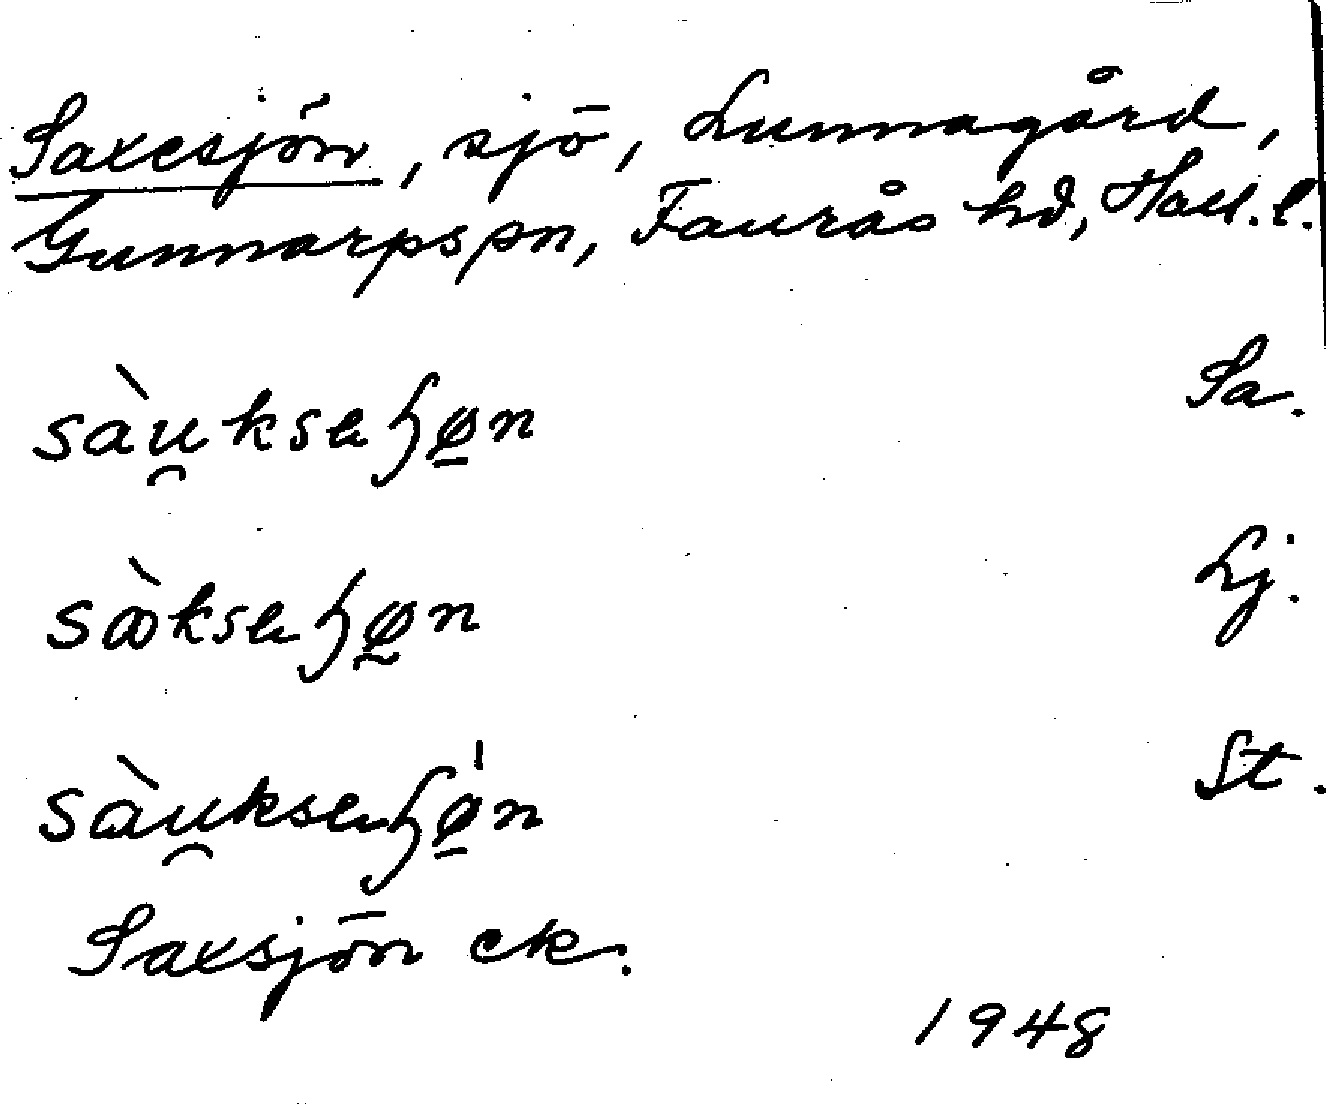 Saxesjön, sjö, Lunnagård,
Gunnarps sn, Faurås hd, Hall. l.
sàu̯kseɧø̠n Sa.
Lj.
sàu̯ksaɧǿ̠n St.
Saxsjön ek.
1948